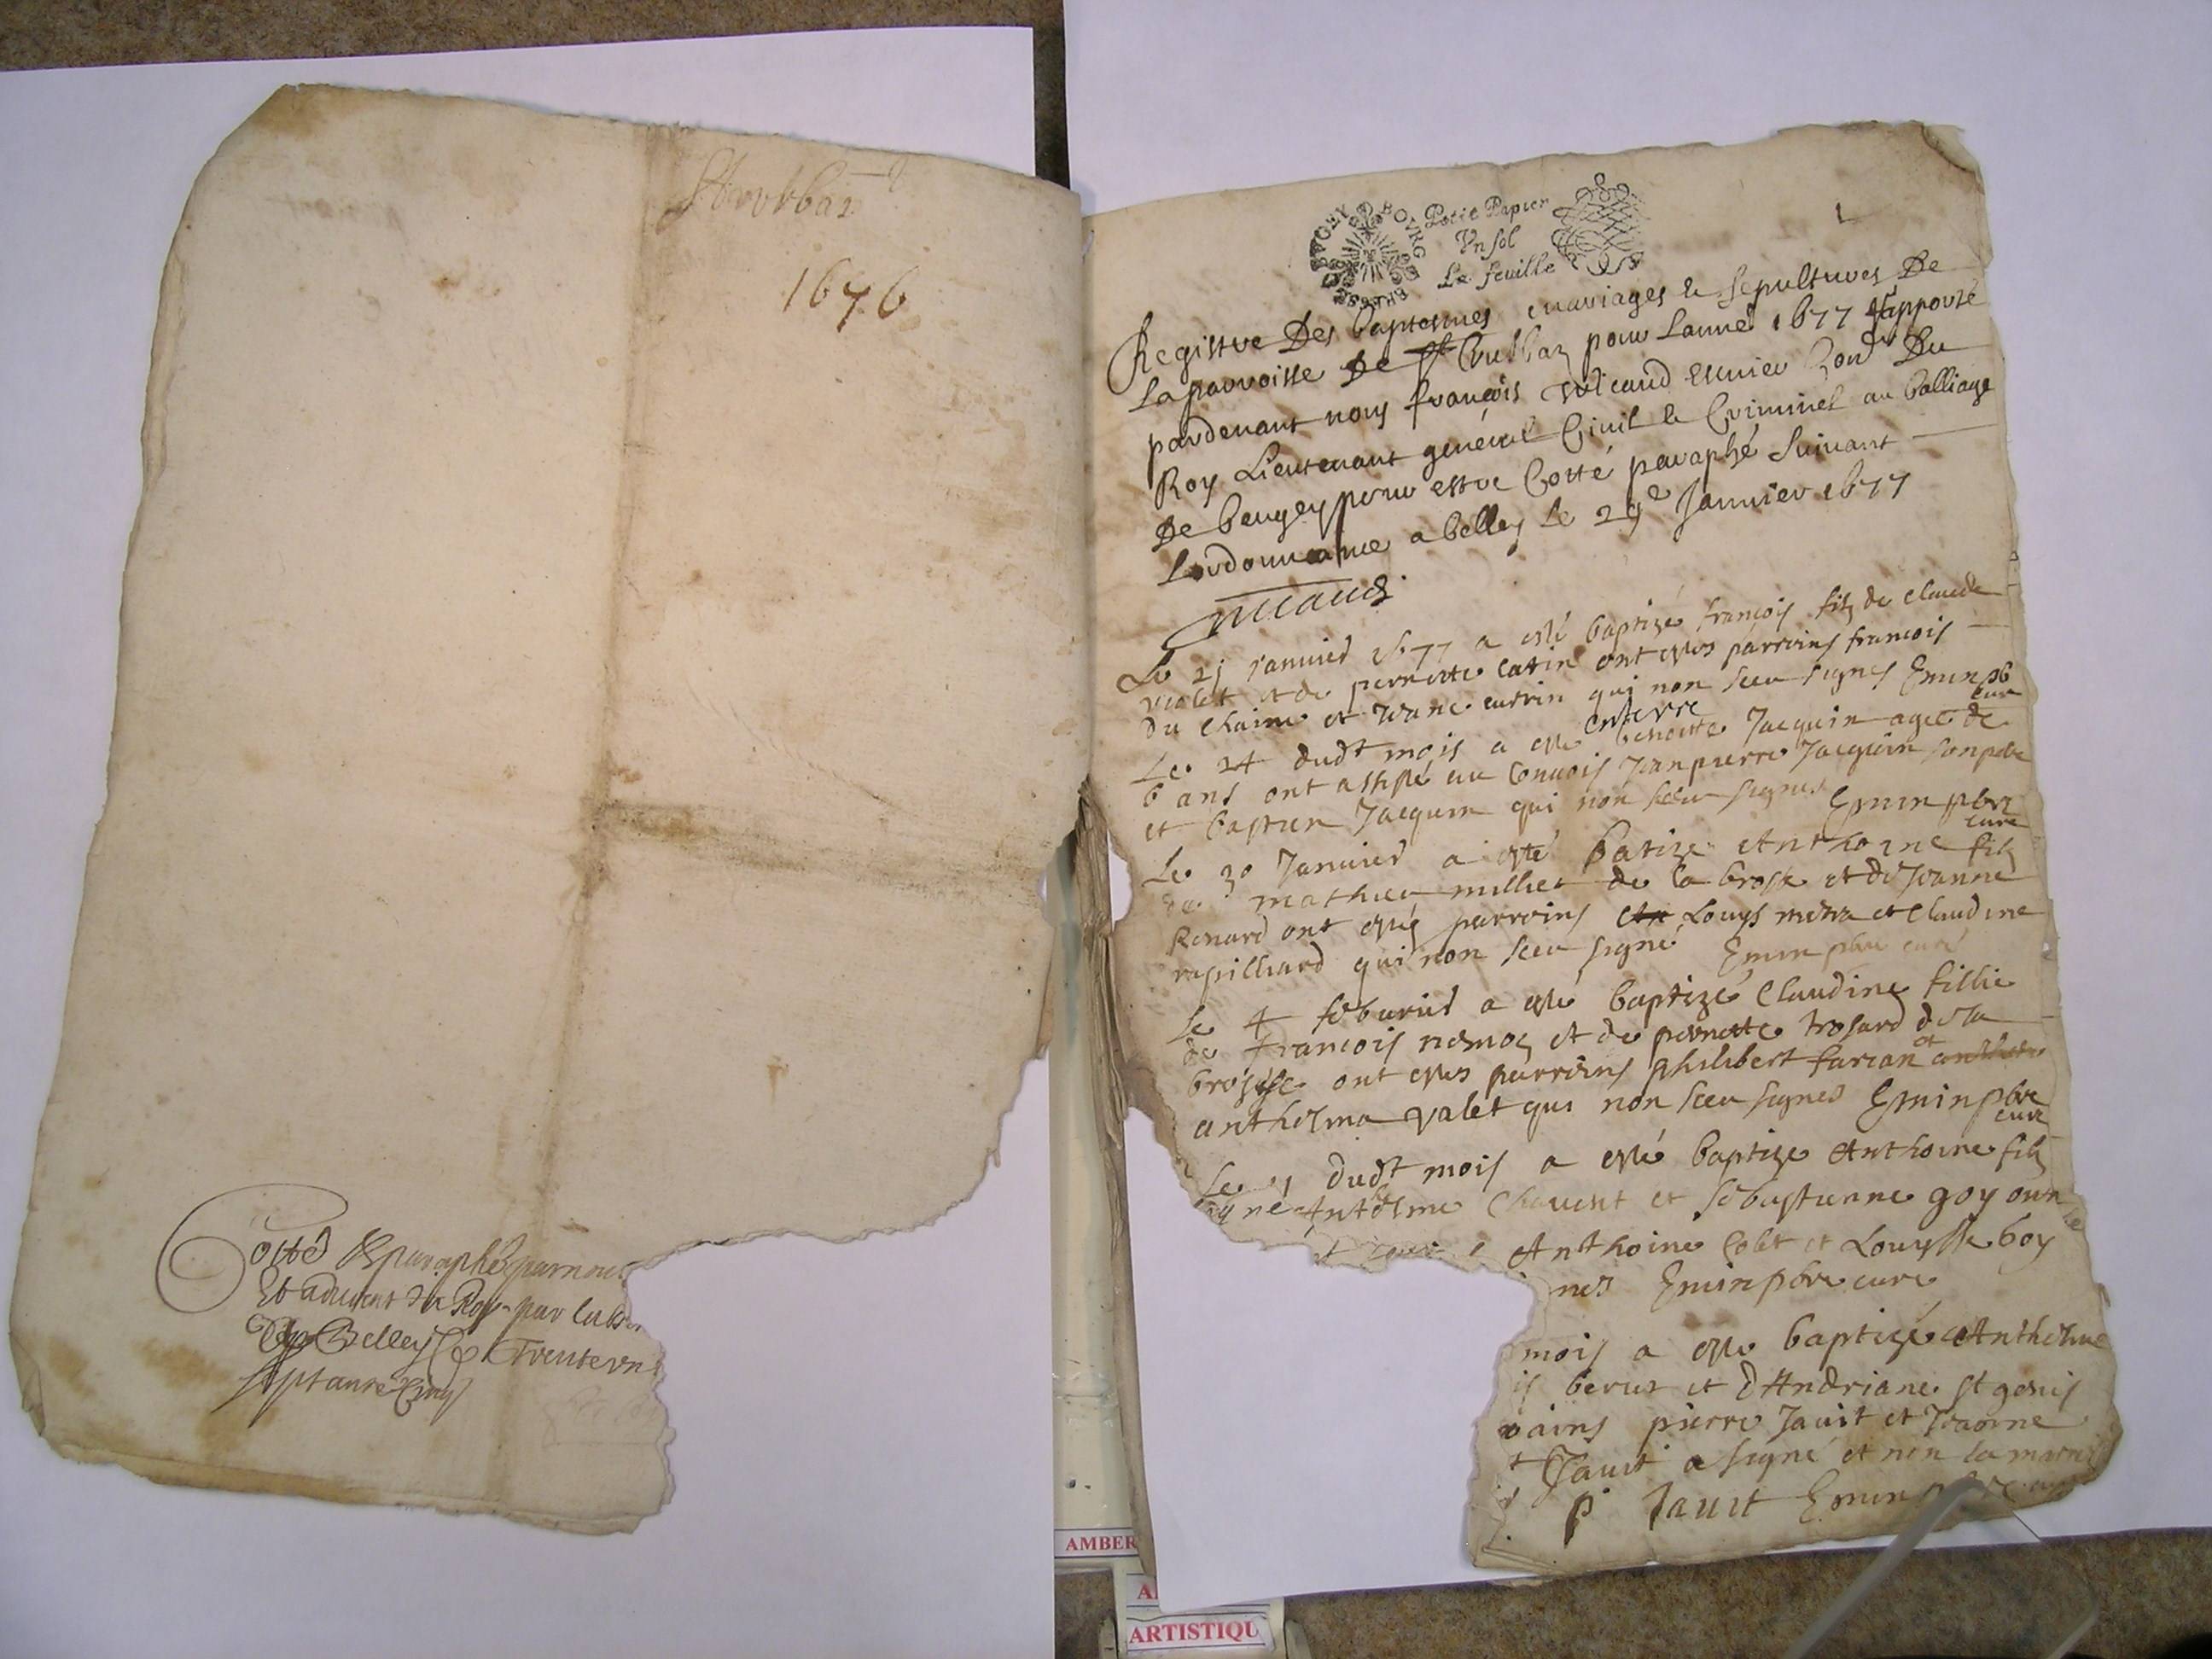 1676
Cotté & paraphé par nous
Et advocat du Roy par
Belley le Trente un
septante cinq
BVGEY BOVRG
Petit Papier
Vn sol
Le feuille
1
Registre Des baptesmes mariages & sepultures De
La parroisse De St pour Lanneé 1677 Rapporté
pardevant nous françois escuier Du
Roy Lieutenant general Civil & Criminel au balliage
De beugey pour estre Cotté paraphé suivant
Lordonnance a belley le 29e Janvier 1677
Le 21 Janvier 1677 a esté baptizé françois filz de Claude
violet et de pernette catin ont estés parroins francois
du Chaine et Jeane qui non sceu signer Emin pb
cure
enterre
Le 24 dudt mois a esté benoitte Jacquin agee de
6 ans ont assisté au Convois Jean pierre Jacquin son pere
et bastien Jacquin qui non sceu signer Emin pbre
cure
Le 30 Janvier a esté batize Anthoine filz
de mathieu milliet de la brosse et de Jeanne
Renard ont estés parroins Louys et Claudine
rapilliard qui non sceu signé Emin pbre curé
Le 4 feburier a esté baptizé Claudine fillie
de francois nemoz et de pernette trosard de la
brosse ont estés parroins philibert farcan et
anthelma valet qui non sceu signer Emin pbre
cure
Le 1 dudt mois a esté baptize Anthoine filz
Anthelme Chavent et sebastienne goy
Anthoine Colet et Louysse boy
ner Emin pbre cure
mois a esté baptizé Anthelme
et dAndriane St genis
rains pierre Javit et Jeanne
t Javit a signé et non la
P Javit Emin
AMBER
A
ARTISTIQU